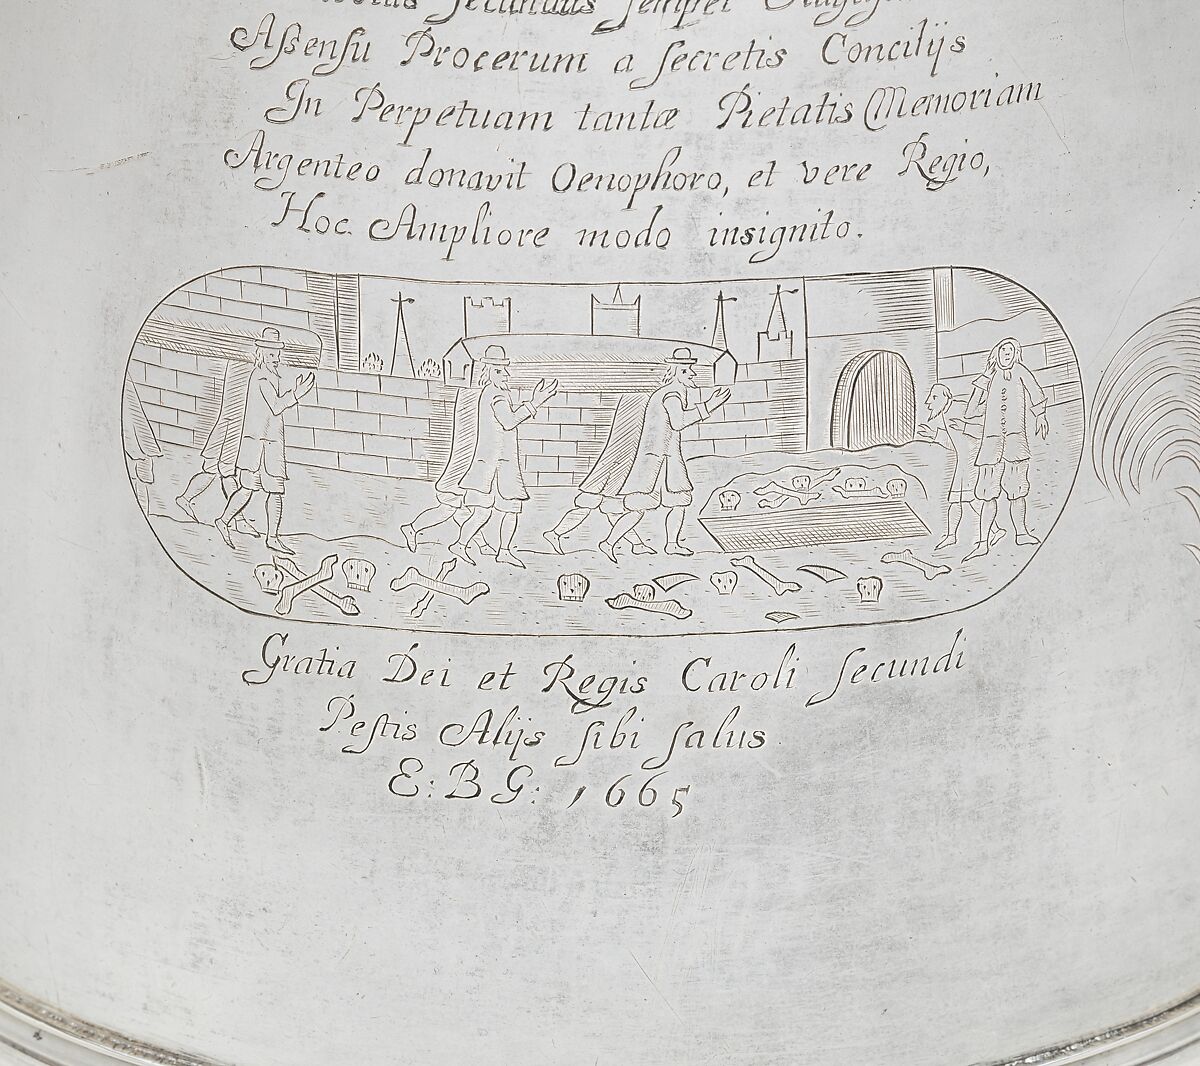 Secundus semper
Aſsensu Procerum a ſecretis Concilijs
In Perpetuam tantæ Pietatis Memoriam
Argenteo donavit Oenophoro, et vere Regio,
Hoc Ampliore modo insignito.
Gratia Dei et Regis Caroli ſecundi
Peſtis Alijs ſibi ſalus
E: B G: 1665